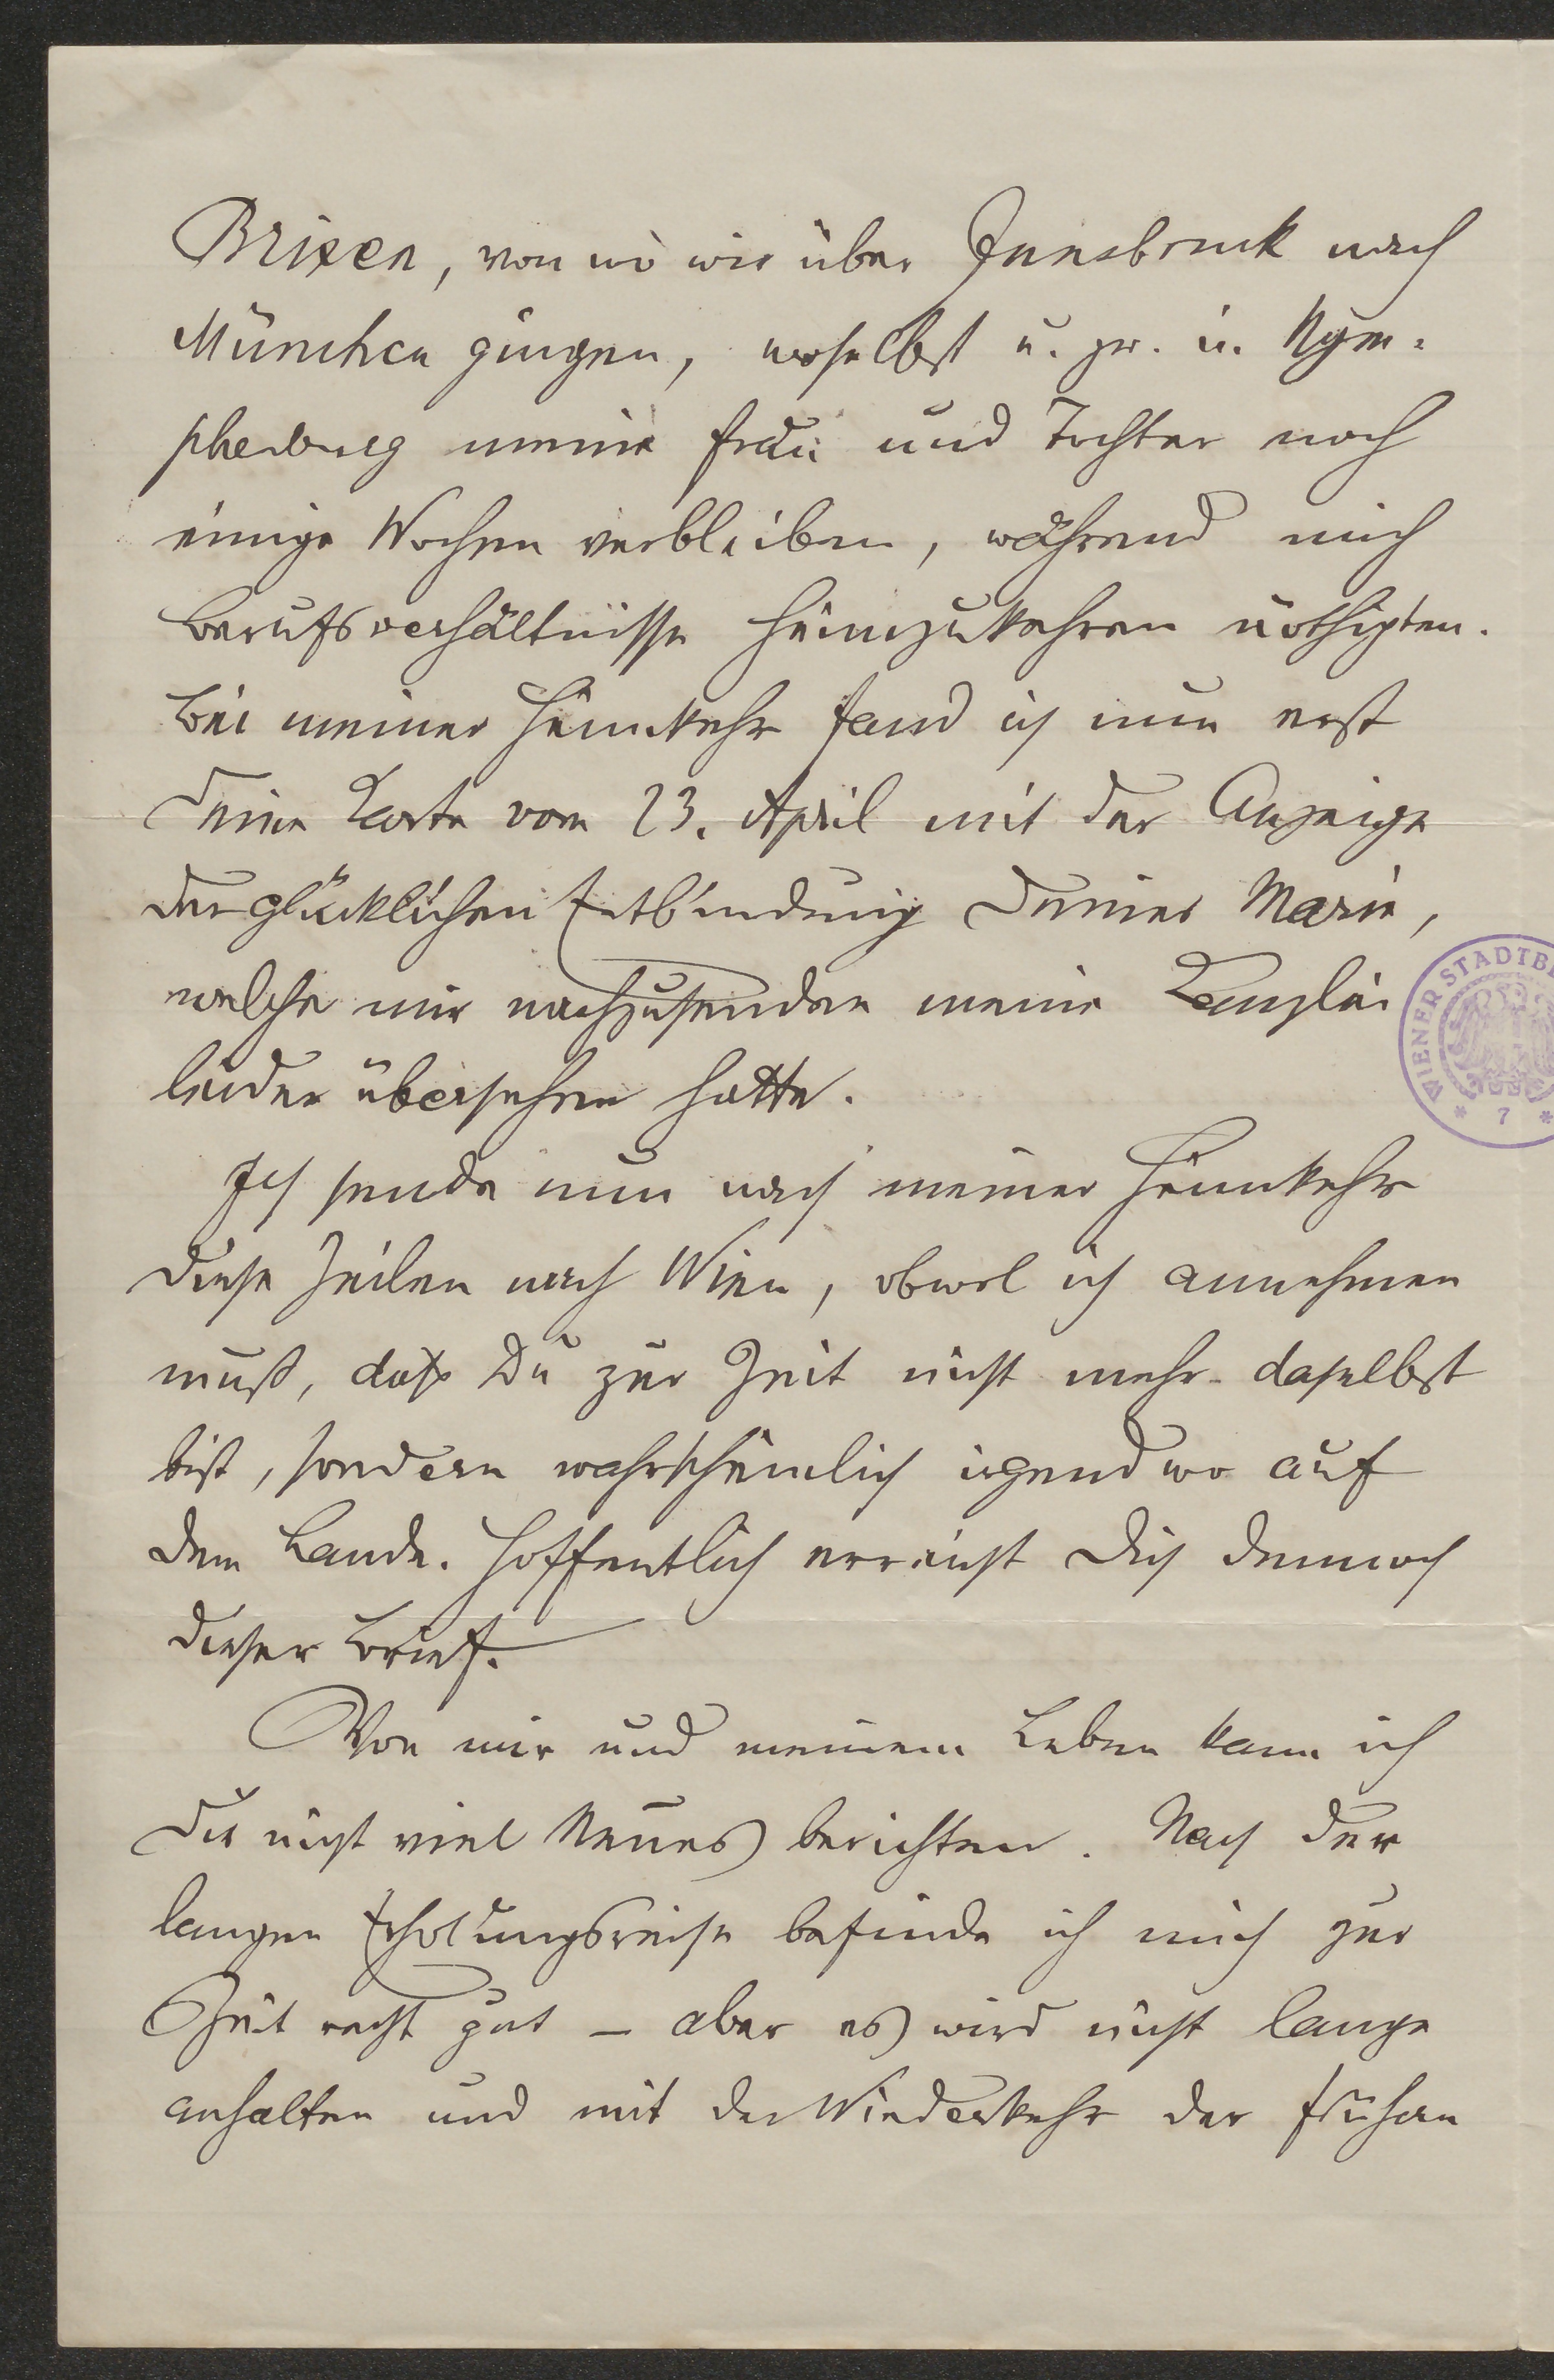 Brixen, von wo wir über Innsbruck nach
München gingen, woselbst u. zw. in Nym=
phenburg meine Frau und Tochter noch
einige Wochen verbleiben, während mich
Berufsverhältnisse heimzukehren nöthigten.
Bei meiner Heimkehr fand ich nun erst
Deine Karte vom 23. April mit der Anzeige
der glücklichen Entbindung Deiner Marie,
welche mir nachzusenden meine Kanzlei
leider übersehen hatte.
Ich sende nun nach meiner Heimkehr
diese Zeilen nach Wien, obwol ich annehmen
muß, daß Du zur Zeit nicht mehr daselbst
bist, sondern wahrscheinlich irgendwo auf
dem Lande. Hoffentlich erreicht Dich dennoch
dieser Brief.
Von mir und meinem Leben kann ich
Dir nicht viel Neues berichten. Nach der
langen Erholungsreise befinde ich mich zur
Zeit recht gut – aber es wird nicht lange
anhalten und mit der Wiederkehr der frühern
WIENER STADTB
* 7 *